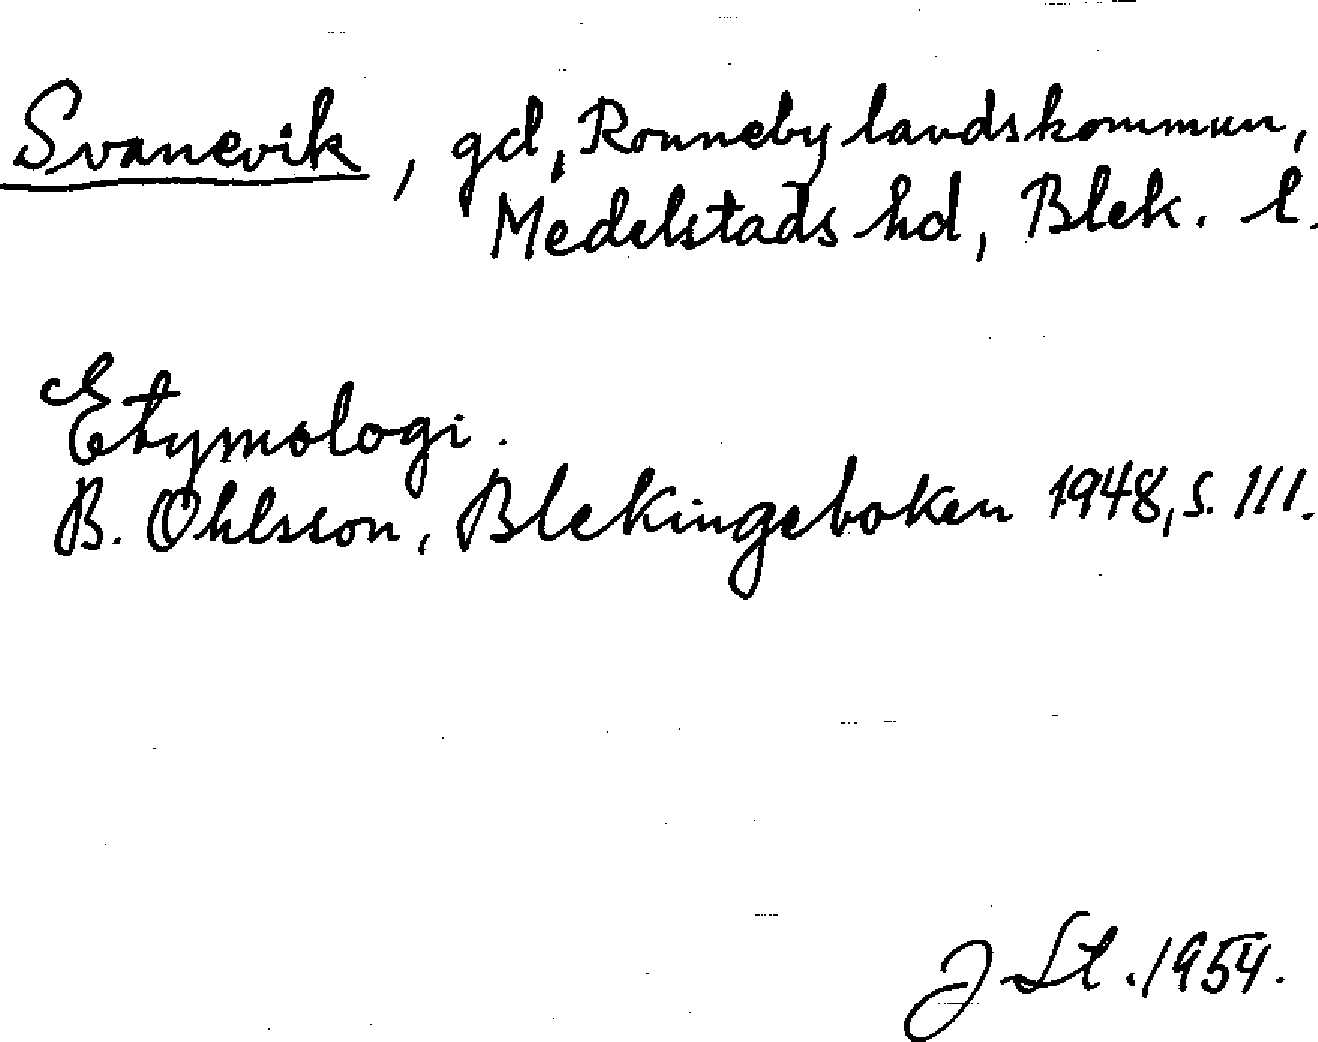 Svanevik, gd, Ronneby landskommun,
Medelstads hd, Blek. l.
Etymologi.
B. Ohlsson, Blekingeboken 1948, s. 111.
J St. 1954.